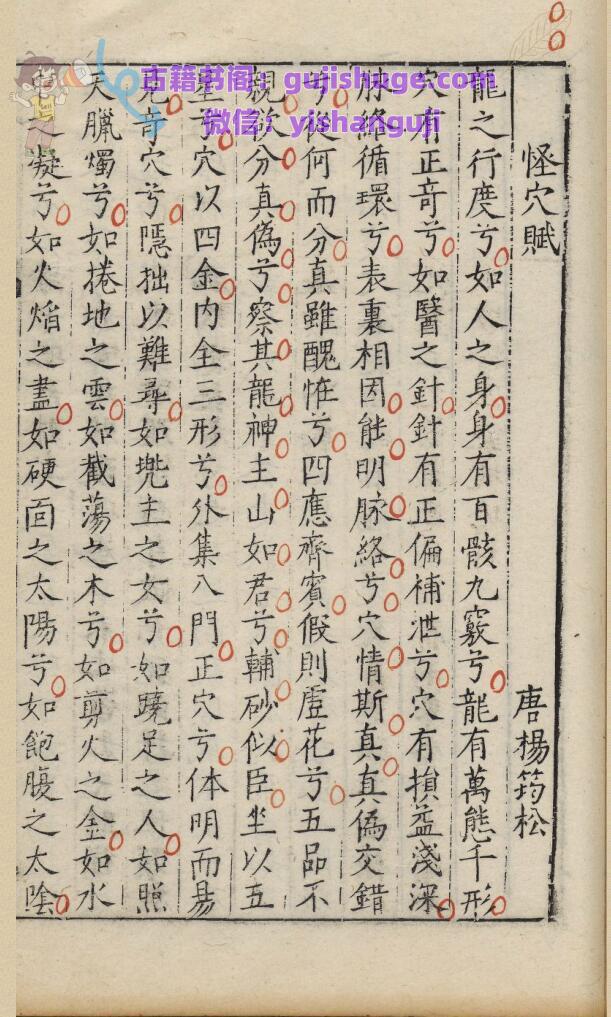 古籍书阁：gujishuge.com
微信：yishanguji
怪穴賦
唐楊筠松
龍之行度兮如人之身身有百骸九竅兮龍有萬態千形
穴有正竒兮如醫之針針有正偏補泄兮穴有損益淺深
脉絡循環兮表裏相因能明脉絡兮穴情斯真真偽交錯
兮從何而分真雖醜恠兮四應齊賓假則虛花兮五品不
親欲分真偽兮察其龍神主山如君兮輔砂似臣坐以五
星兮穴以四金内全三形兮外集八門正穴兮体明而易
見竒穴兮隱拙以難尋如兠主之女兮如蹺足之人如照
天臘燭兮如捲地之雲如截蕩之木兮如剪火之金如水
之凝兮如火熖之盡如硬面之太陽兮如飽腹之太陰